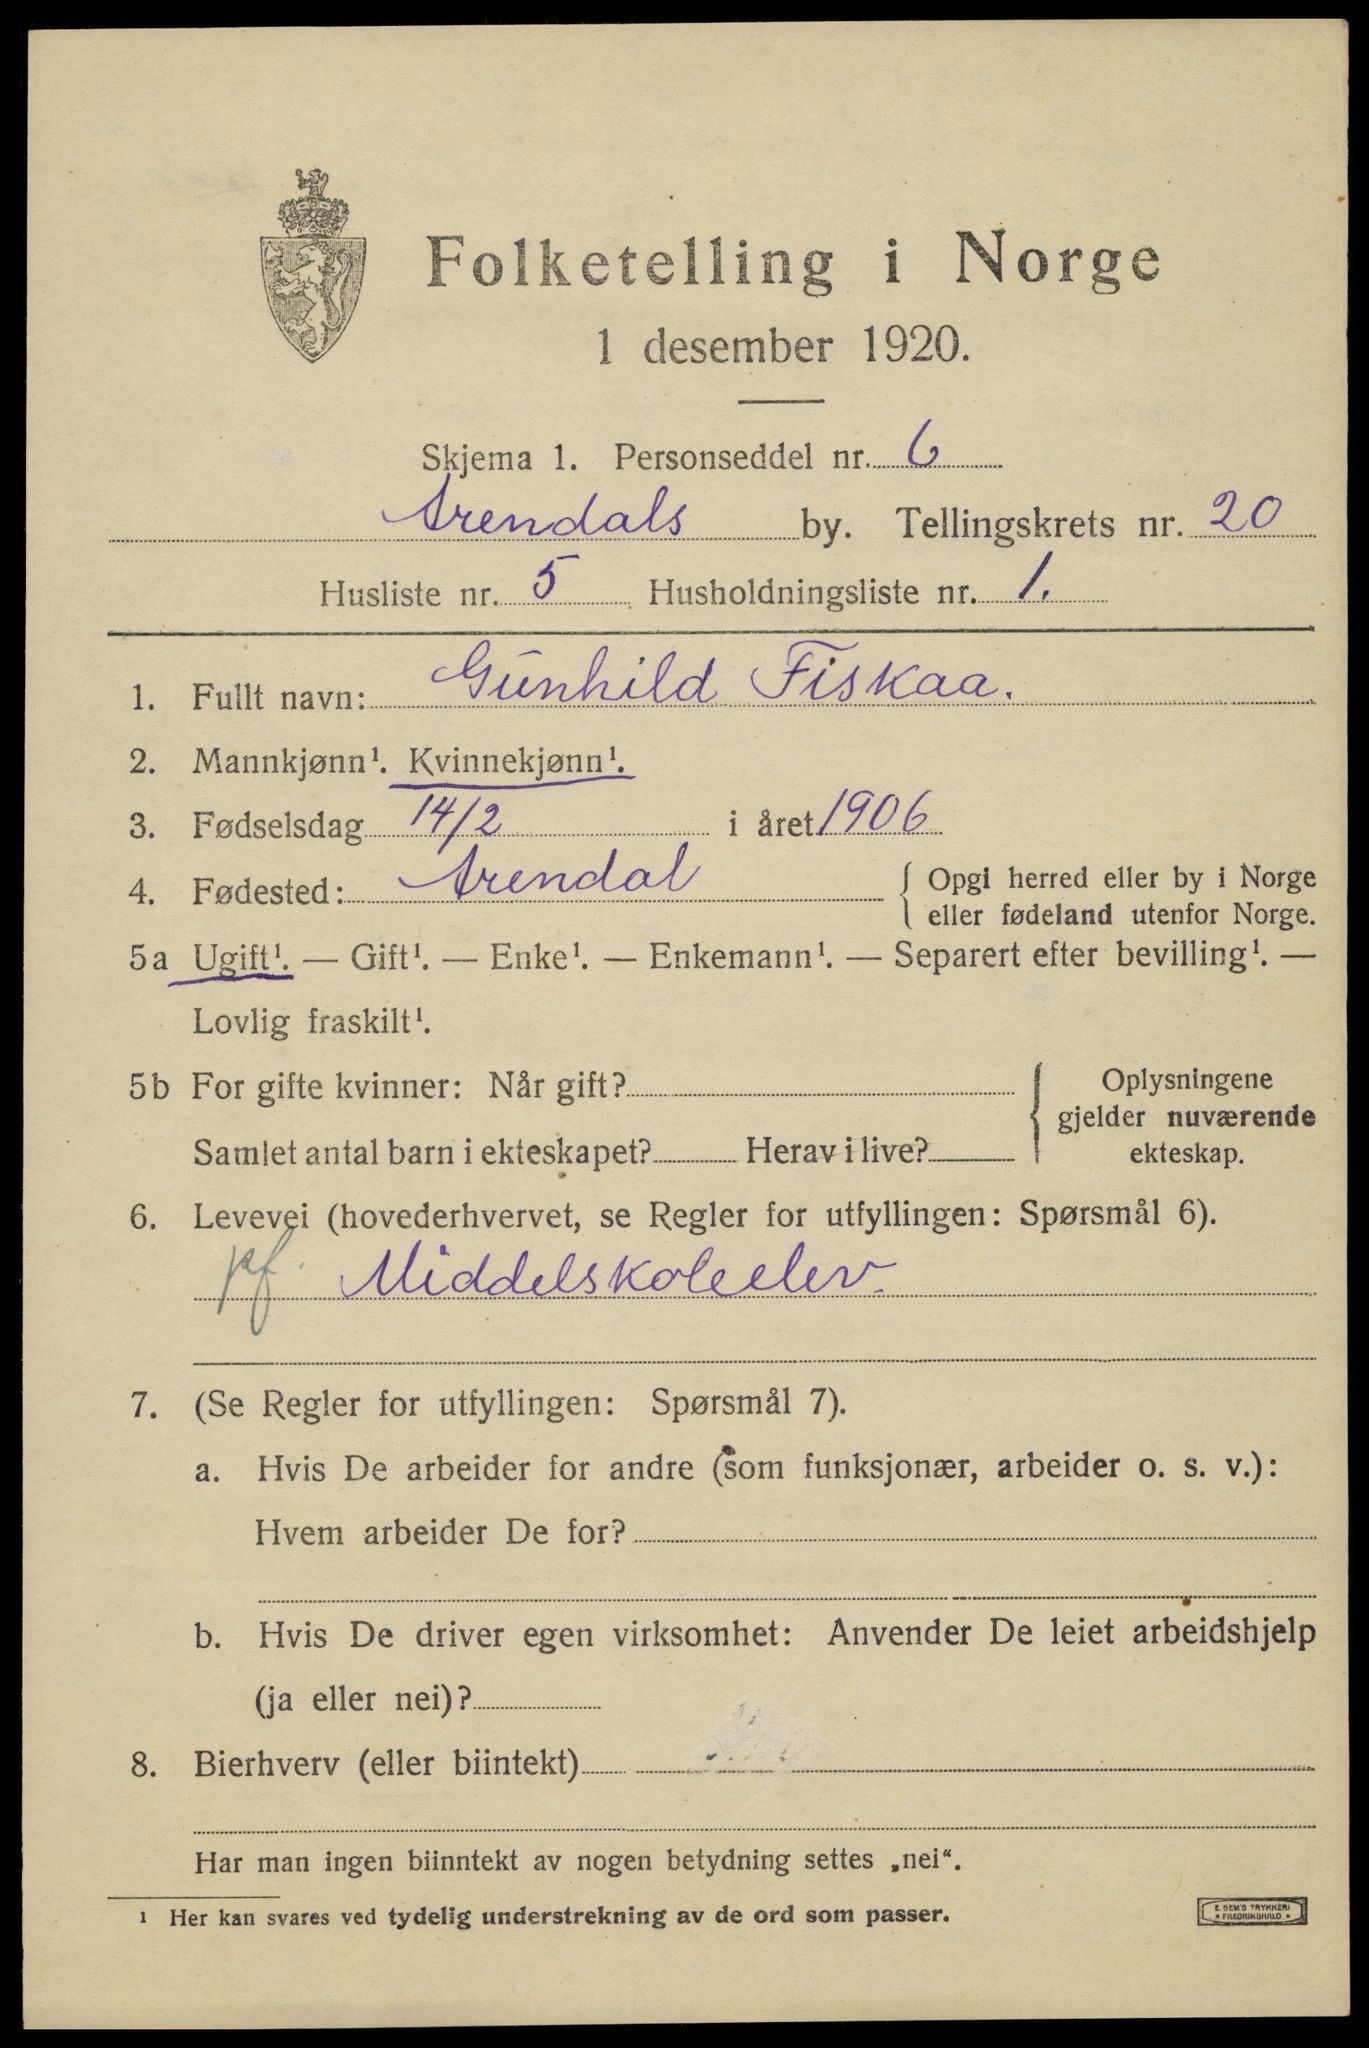 Folketelling i Norge
1 desember 1920.
Skjema 1. Personseddel nr. 6
Arendals by. Tellingskrets nr. 20
Husliste nr. 5 Husholdningsliste nr. 1.
1. Fullt navn: Gunhild Fiskaa.
2. Mannkjønn¹. Kvinnekjønn¹.
3. Fødselsdag 14/2 i året 1906
4. Fødested: Arendal { Opgi herred eller by i Norge
eller fødeland utenfor Norge.
5a Ugift¹. — Gift¹. — Enke¹. — Enkemann¹. — Separert efter bevilling¹. —
Lovlig fraskilt¹.
5b For gifte kvinner: Når gift? { Oplysningene
gjelder nuværende
Samlet antal barn i ekteskapet? Herav i live? ekteskap.
6. Levevei (hovederhvervet, se Regler for utfyllingen: Spørsmål 6).
pf. Middelskoleelev.
7. (Se Regler for utfyllingen: Spørsmål 7).
a. Hvis De arbeider for andre (som funksjonær, arbeider o. s. v.):
Hvem arbeider De for?
b. Hvis De driver egen virksomhet: Anvender De leiet arbeidshjelp
(ja eller nei)?
8. Bierhverv (eller biintekt)
Har man ingen biinntekt av nogen betydning settes „nei“.
¹ Her kan svares ved tydelig understrekning av de ord som passer.
E. SEM'S TRYKKERI
• FREDRIKSHALD •